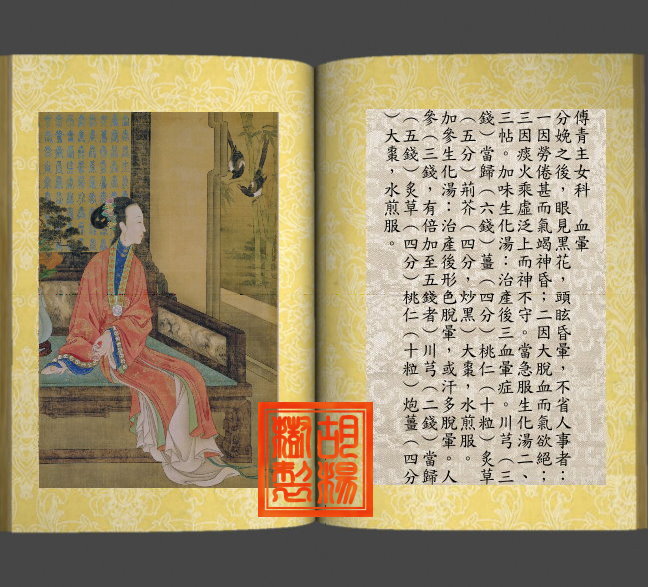 傅青主女科　血暈
分娩之後，眼見黑花，頭眩昏暈，不省人事者：
一因勞倦甚而氣竭神昏；二因大脫血而氣欲絕；
三因痰火乘虛泛上而神不守。當急服生化湯二、
三帖。加味生化湯：治產後三血暈症。川芎（三
錢）當歸（六錢）薑（四分）桃仁（十粒）炙草
（五分）荊芥（四分，炒黑）大棗，水煎服。
加參生化湯：治產後形色脫暈，或汗多脫暈。人
參（三錢，有倍加至五錢者）川芎（二錢）當歸
（五錢）炙草（四分）桃仁（十粒）炮薑（四分
）大棗，水煎服。
胡楊
製